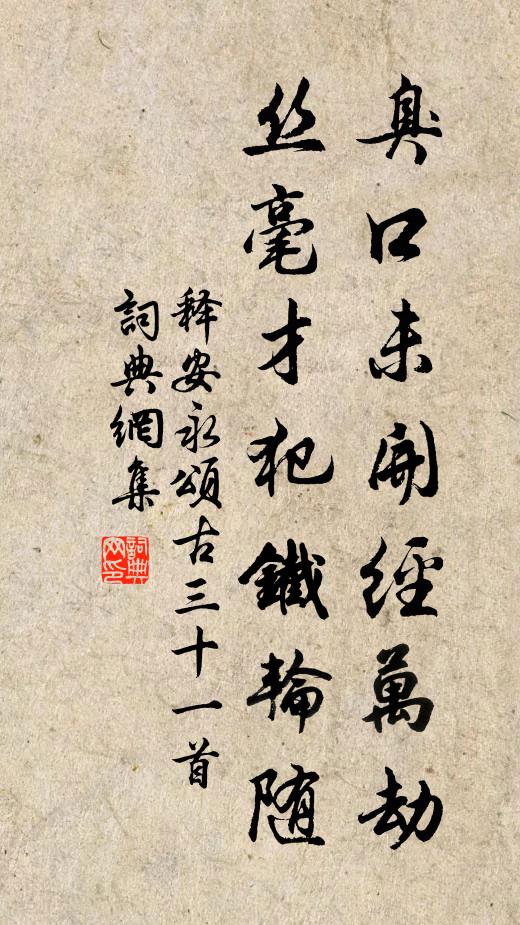 臭口未開經萬劫
丝毫才犯鐵輪随
释安永頌古三十一首
詞典網集
詞典網印